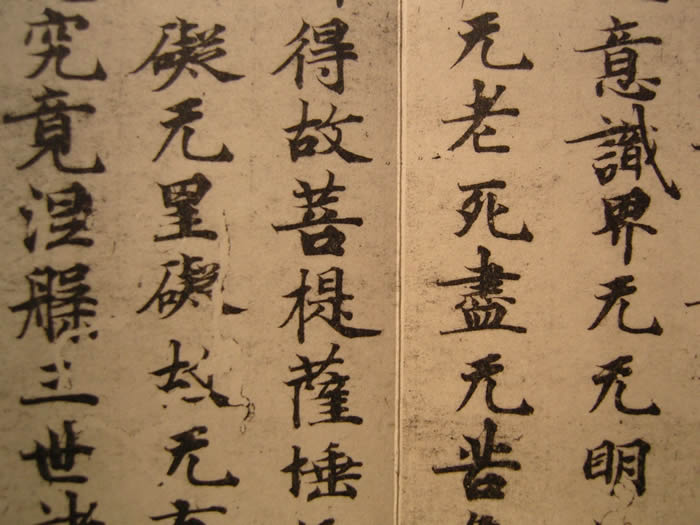 意識界无无明
无老死盡无苦
得故菩提薩埵
礙无罣礙故无有
究竟涅槃三世諸